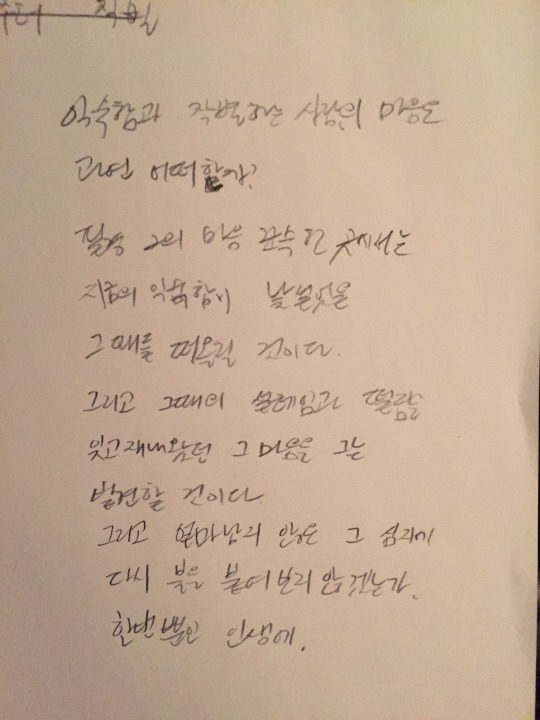 익숙함과 작별하는 사람의 마음은
과연 어떠할까?
필경 그의 마음 깊숙한 곳에서는
지금의 익숙함이 낯설었을
그때를 떠올릴 것이다.
그리고 그때의 설레임과 떨림을
잊고 지내왔던 그 마음을 그는
발견할 것이다.
그리고 얼마남지 않은 그 심지에
다시 불을 붙여보리 않겠는가.
한번뿐인 인생에.